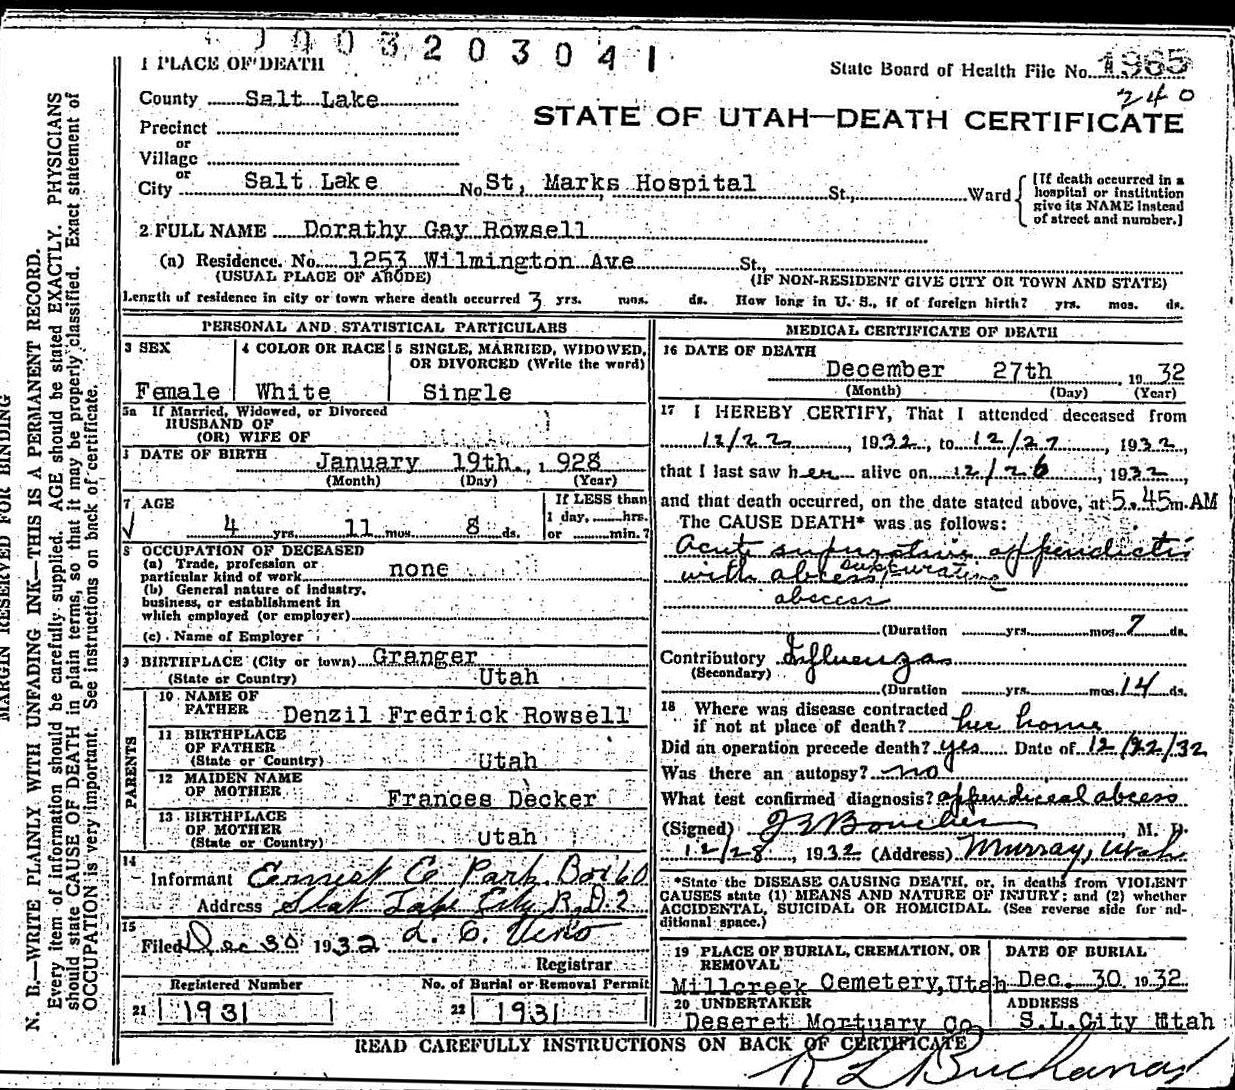 1 0 0 3 2 0 3 0 4 1
1 PLACE OF DEATH
State Board of Health File No. 1965
240
County Salt Lake
STATE OF UTAH—DEATH CERTIFICATE
Precinct
or
Village
or
City Salt Lake No St, Marks Hospital St., Ward
[If death occurred in a hospital or institution give its NAME instead of street and number.]
2 FULL NAME Dorathy Gay Rowsell
(a) Residence. No. 1253 Wilmington Ave St.,
(USUAL PLACE OF ABODE) (IF NON-RESIDENT GIVE CITY OR TOWN AND STATE)
Length of residence in city or town where death occurred 3 yrs. mos. ds. How long in U. S., if of foreign birth? yrs. mos. ds.
PERSONAL AND STATISTICAL PARTICULARS
3 SEX
Female
4 COLOR OR RACE
White
5 SINGLE, MARRIED, WIDOWED,
OR DIVORCED (Write the word)
Single
5a If Married, Widowed, or Divorced
HUSBAND OF
(OR) WIFE OF
DATE OF BIRTH January 19th., 1928
(Month) (Day) (Year)
7 AGE
4 yrs. 11 mos 8 ds.
If LESS than
1 day, hrs.
or min.?
8 OCCUPATION OF DECEASED
(a) Trade, profession or
particular kind of work none
(b) General nature of industry,
business, or establishment in
which employed (or employer)
(c) Name of Employer
9 BIRTHPLACE (City or town) Granger
(State or Country) Utah
PARENTS
10 NAME OF
FATHER Denzil Fredrick Rowsell
11 BIRTHPLACE
OF FATHER
(State or Country) Utah
12 MAIDEN NAME
OF MOTHER Frances Decker
13 BIRTHPLACE
OF MOTHER
(State or Country) Utah
14
Informant Ernest C Park Box 60
Address Salt Lake City R.D. 2
15
Filed Dec 30 1932
Registrar
Registered Number No. of Burial or Removal Permit
21 1931 22 1931
MEDICAL CERTIFICATE OF DEATH
16 DATE OF DEATH
December 27th, 1932
(Month) (Day) (Year)
17 I HEREBY CERTIFY, That I attended deceased from
12/22, 1932, to 12/27, 1932,
that I last saw her alive on 12/26, 1932,
and that death occurred, on the date stated above, at 5.45 m. AM
The CAUSE DEATH* was as follows:
Acute supurative appendictis
with abcess suppurating
abscess
(Duration yrs. mos. 7 ds.
Contributory Influenza
(Secondary)
(Duration yrs. mos. 14 ds.
18 Where was disease contracted
if not at place of death? her home
Did an operation precede death? yes Date of 12/22/32
Was there an autopsy? no
What test confirmed diagnosis? appendiceal abcess
(Signed) M. D.
12/28, 1932 (Address) Murray, Utah
*State the DISEASE CAUSING DEATH, or, in deaths from VIOLENT
CAUSES state (1) MEANS AND NATURE OF INJURY; and (2) whether
ACCIDENTAL, SUICIDAL OR HOMICIDAL. (See reverse side for ad-
ditional space.)
19 PLACE OF BURIAL, CREMATION, OR
REMOVAL
Millcreek Cemetery, Utah
DATE OF BURIAL
Dec. 30 1932
20 UNDERTAKER
Deseret Mortuary Co
ADDRESS
S.L.City Utah
READ CAREFULLY INSTRUCTIONS ON BACK OF CERTIFICATE
R L Buchanan
MARGIN RESERVED FOR BINDING
N. B.—WRITE PLAINLY WITH UNFADING INK—THIS IS A PERMANENT RECORD.
Every item of information should be carefully supplied. AGE should be stated EXACTLY. PHYSICIANS
should state CAUSE OF DEATH in plain terms, so that it may be properly classified. Exact statement of
OCCUPATION is very important. See instructions on back of certificate.